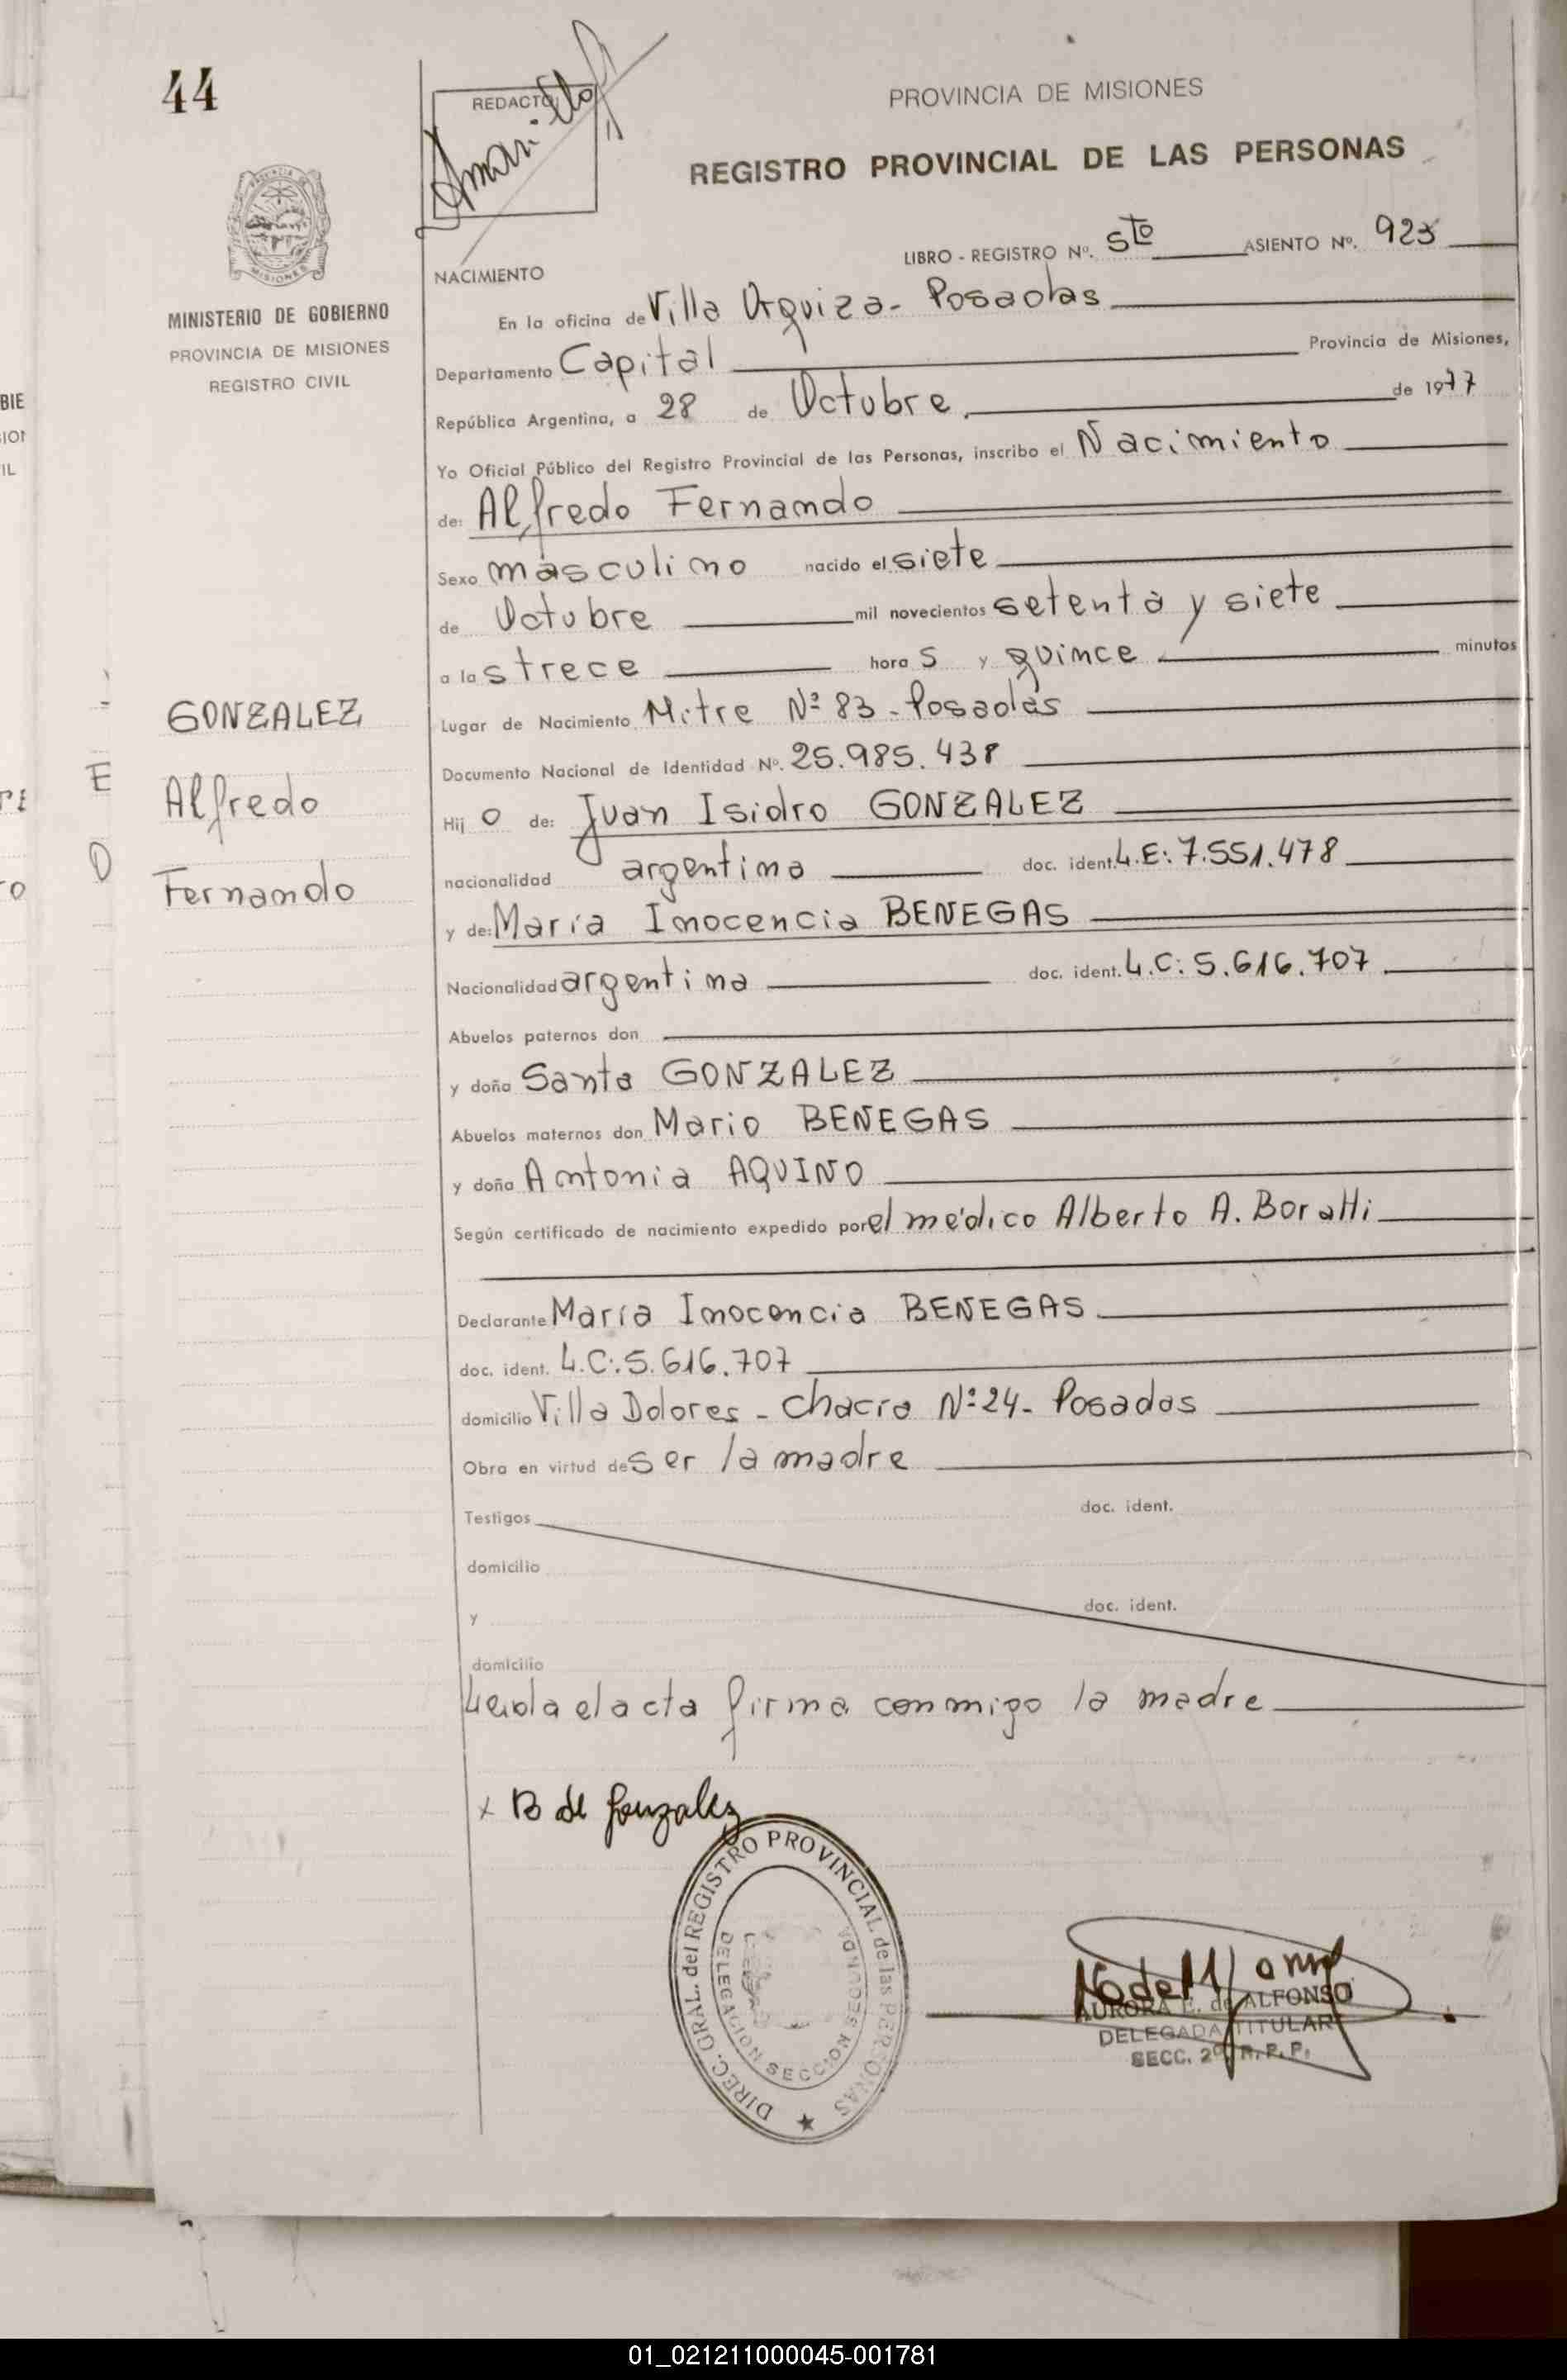 44
REDACTO
PROVINCIA DE MISIONES
REGISTRO PROVINCIAL DE LAS PERSONAS
LIBRO - REGISTRO Nº. 5to ASIENTO Nº. 923
NACIMIENTO
MISIONES
MINISTERIO DE GOBIERNO
PROVINCIA DE MISIONES
REGISTRO CIVIL
En la oficina de Villa Urquiza - Posadas
Departamento Capital Provincia de Misiones,
República Argentina, a 28 de Octubre, de 1977
Yo Oficial Público del Registro Provincial de las Personas, inscribo el Nacimiento
de: Alfredo Fernando
Sexo masculino nacido el siete
de Octubre mil novecientos setenta y siete
a las trece horas y quince minutos
Lugar de Nacimiento Mitre Nº 83 - Posadas
Documento Nacional de Identidad Nº. 25.985.438
GONZALEZ
Alfredo
Fernando
Hijo de: Juan Isidro GONZALEZ
nacionalidad argentina doc. ident. L.E: 7.551.478
y de: María Inocencia BENEGAS
Nacionalidad argentina doc. ident. L.C: 5.616.707
Abuelos paternos don
y doña Santa GONZALEZ
Abuelos maternos don Mario BENEGAS
y doña Antonia AQUINO
Según certificado de nacimiento expedido por el médico Alberto A. Boratti
Declarante María Inocencia BENEGAS
doc. ident. L.C:.5.616.707
domicilio Villa Dolores - Chacra Nº:24 - Posadas
Obra en virtud de ser la madre
Testigos doc. ident.
domicilio
y doc. ident.
domicilio
Leida el acta firma conmigo la madre
x B de Gonzalez
DIREC. GRAL. del REGISTRO PROVINCIAL de las PERSONAS
DELEGACION SECCION SEGUNDA
AURORA E. de ALFONSO
DELEGADA TITULAR
SECC. 2º R. P. P.
01_021211000045-001781